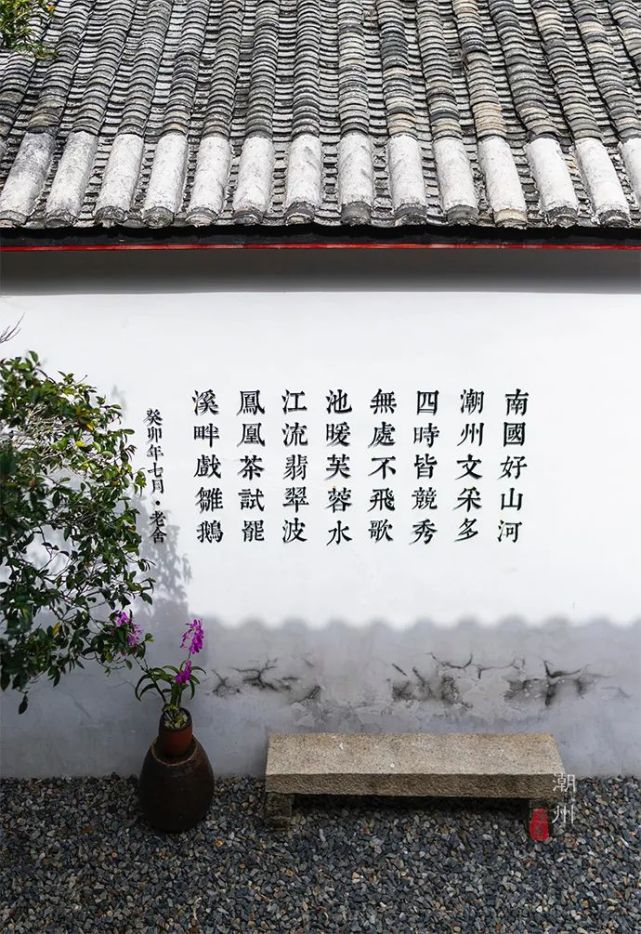 南國好山河
潮州文采多
四時皆競秀
無處不飛歌
池暖芙蓉水
江流翡翠波
鳳凰茶試罷
溪畔戲雛鵝
癸卯年七月·老舍
潮州